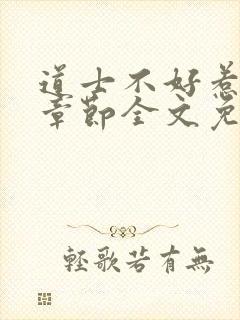 道士不好惹
章節全文免
輕歌若有無